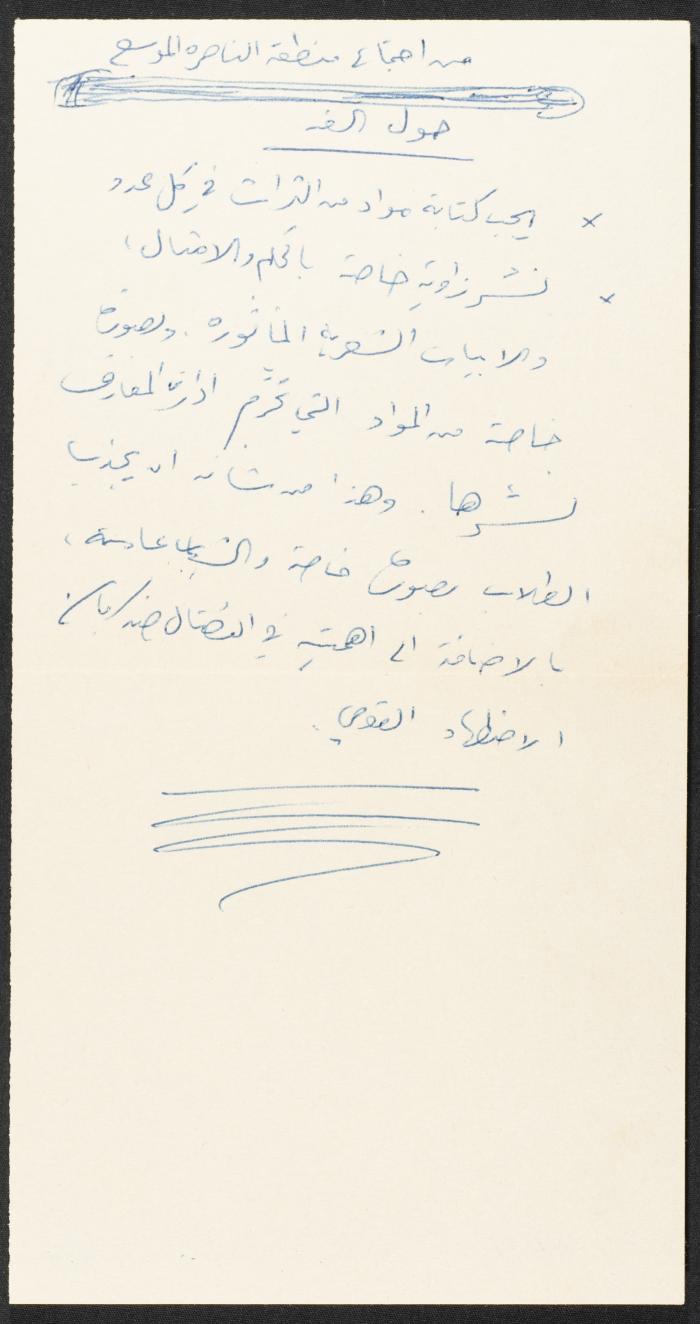 من اجتماع منطقة الناصره الموسع
حول الغد
× يجب كتابة مواد من التراث في كل عدد
× نشر زاوية خاصة بالحكم والامثال،
والابيات الشعرية المأثوره. وبصورة
خاصة من المواد التي تحرّم ادارة المعارف
نشرها. وهذا من شأنه ان يجذب
الطلاب بصورة خاصة والشباب عامة،
بالاضافة الى اهميته في النضال ضد
الاضطهاد القومي.